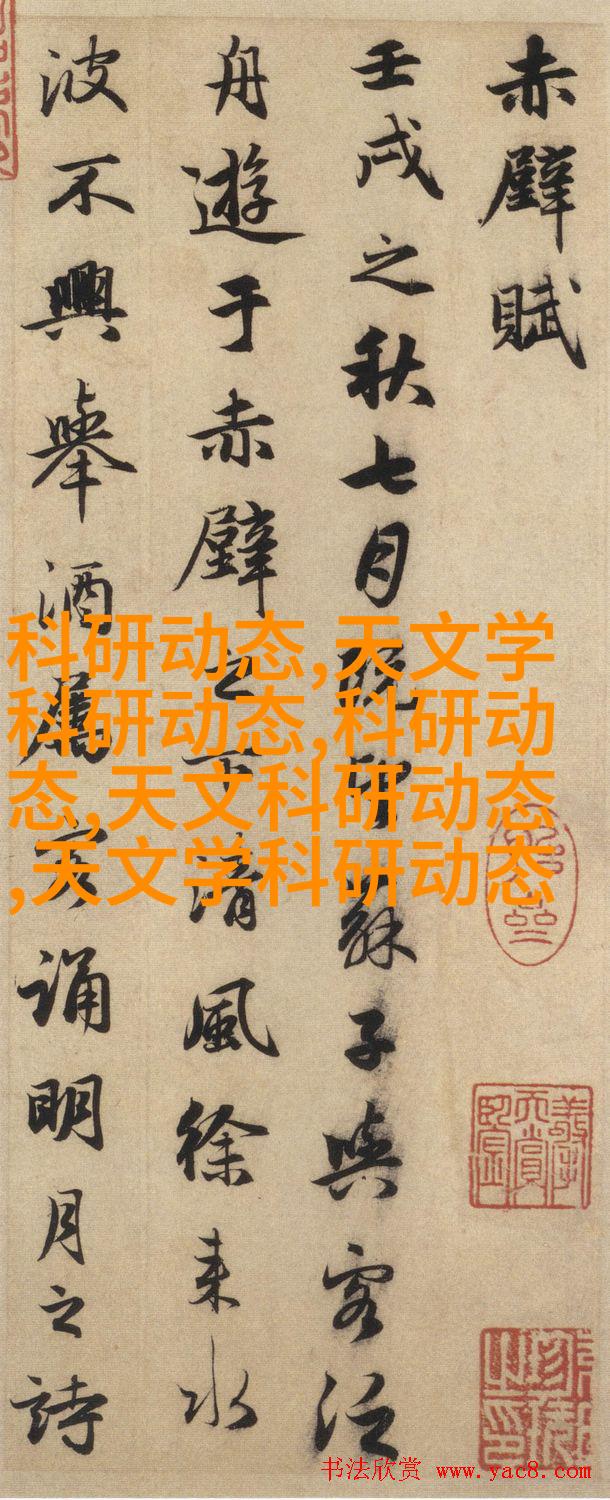 赤壁賦
壬戌之秋七月既望蘇子與客泛
舟遊于赤壁之下清風徐来水
波不興舉酒屬客誦明月之詩
科研动态,天文学
科研动态,科研动
态,天文科研动态
,天文学科研动态
书法欣赏 www.yac8.com